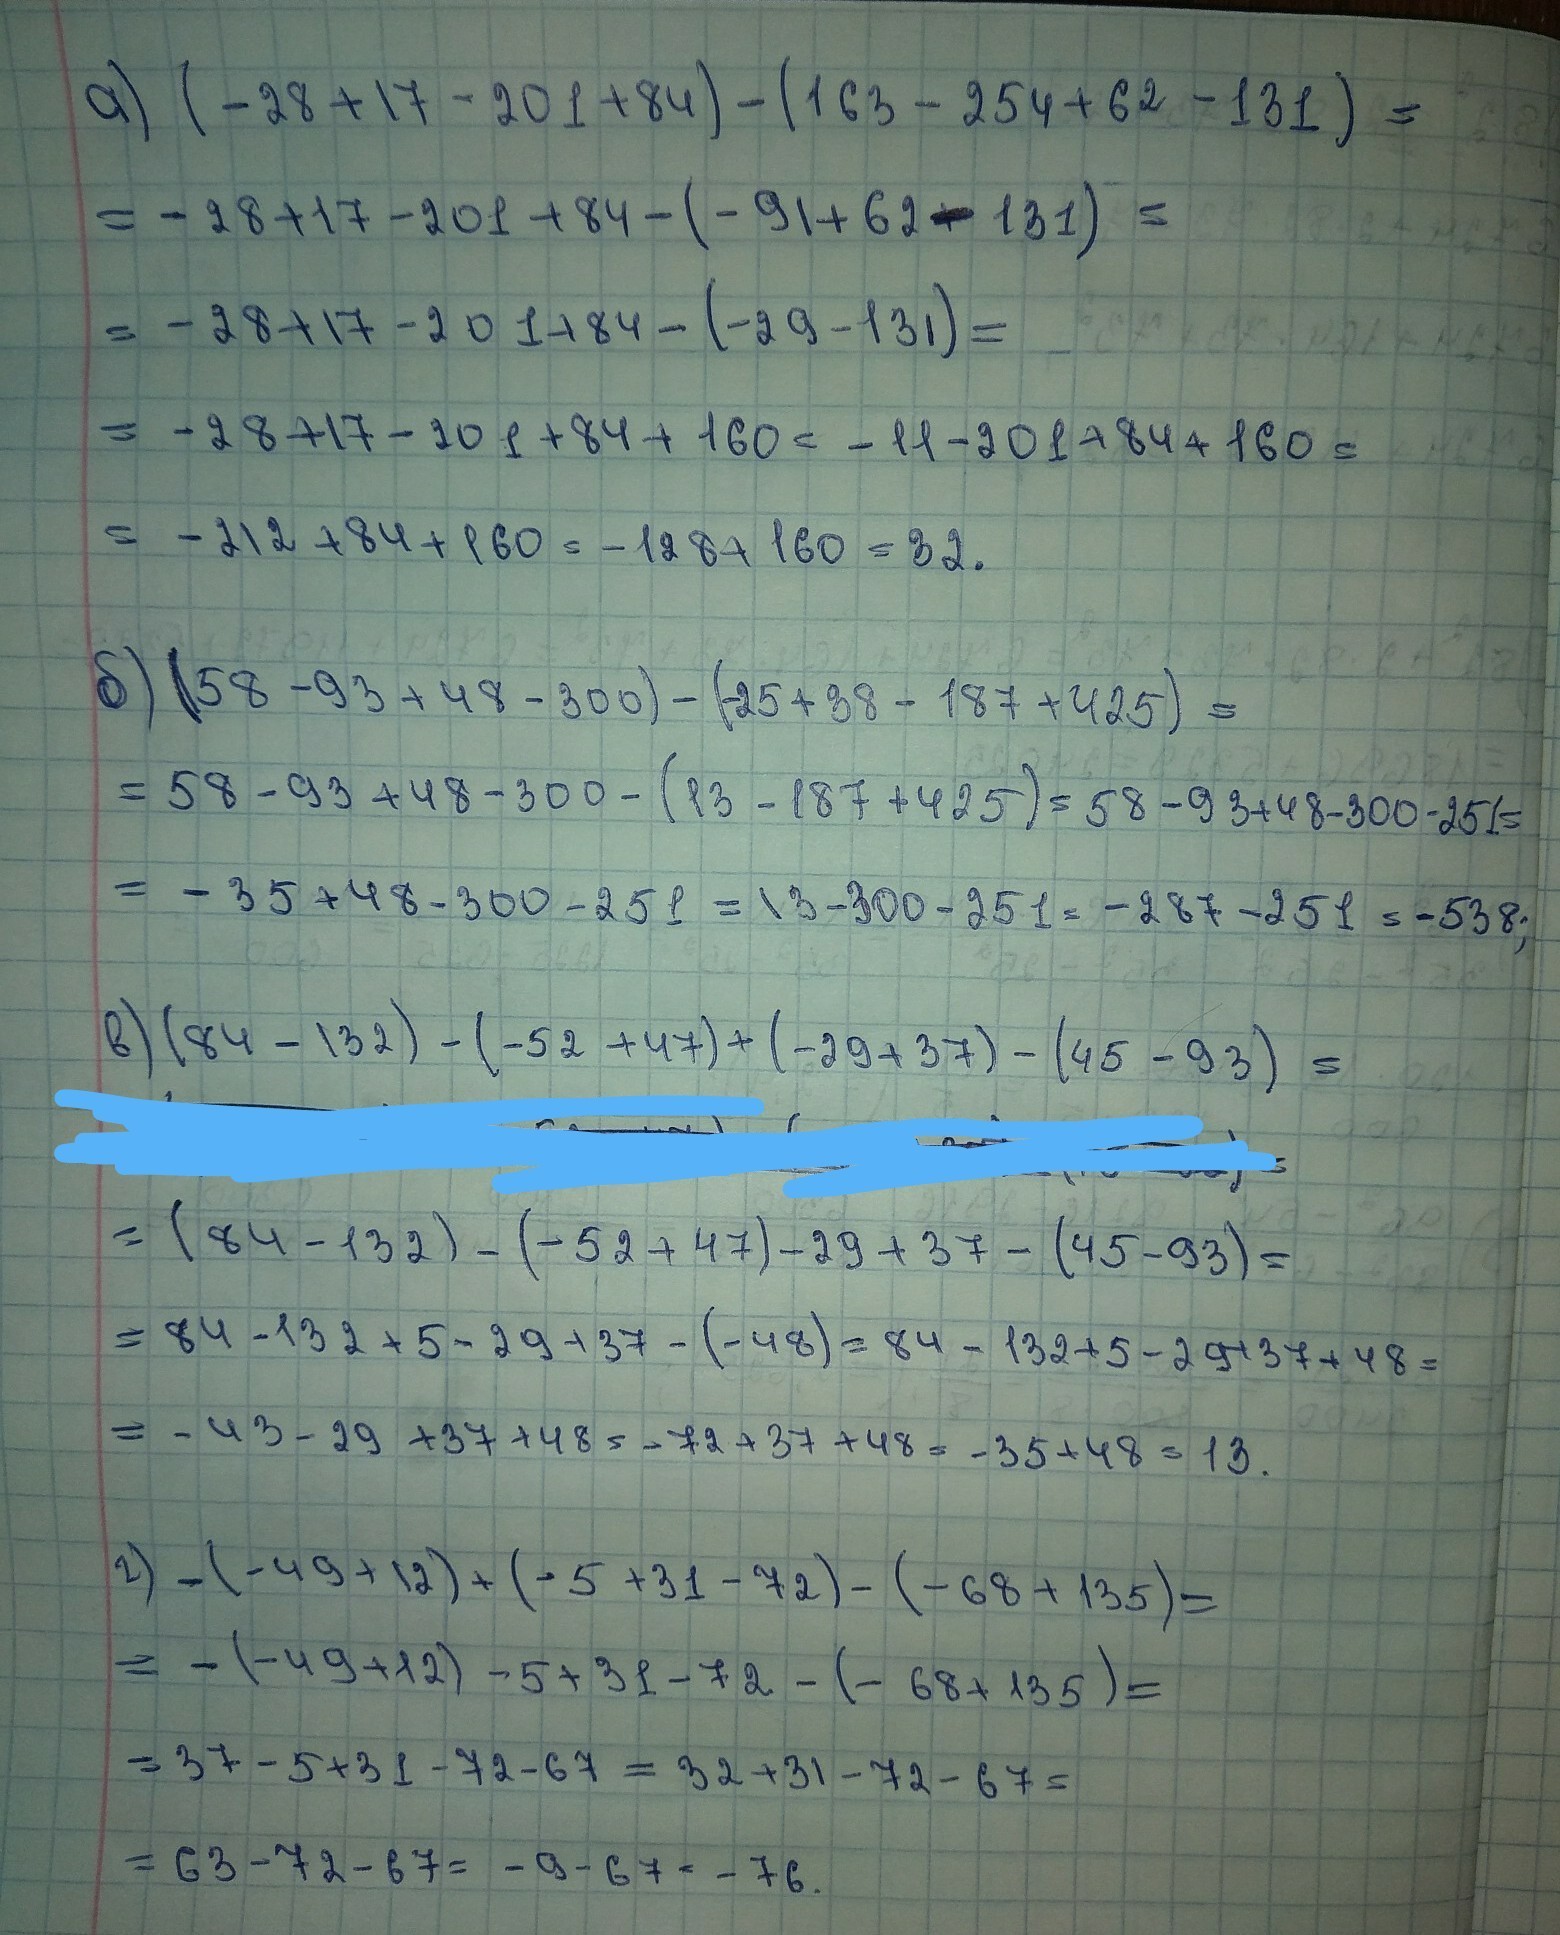 а) (-28+17-201+84)-(163-254+62-131)=
=-28+17-201+84-(-91+62-131)=
=-28+17-201+84-(-29-131)=
=-28+17-201+84+160=-11-201+84+160=
=-212+84+160=-128+160=32.
б) (58-93+48-300)-(-25+38-187+425)=
=58-93+48-300-(13-187+425)=58-93+48-300-251=
=-35+48-300-251=13-300-251=-287-251=-538;
в) (84-132)-(-52+47)+(-29+37)-(45-93)=
=(84-132)-(-52+47)-29+37-(45-93)=
=84-132+5-29+37-(-48)=84-132+5-29+37+48=
=-43-29+37+48=-72+37+48=-35+48=13.
г) -(-49+12)+(-5+31-72)-(-68+135)=
=-(-49+12)-5+31-72-(-68+135)=
=37-5+31-72-67=32+31-72-67=
=63-72-67=-9-67=-76.